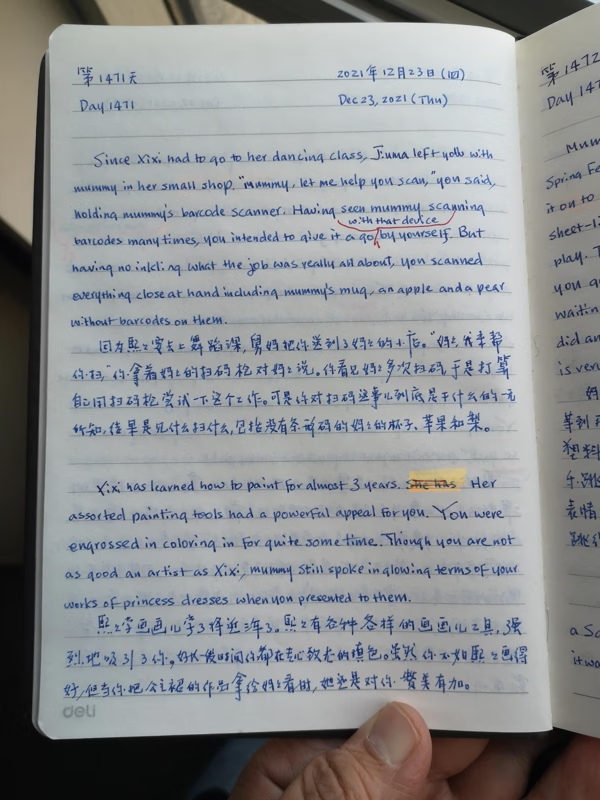 第1471天 2021年12月23日(四)
Day 1471 Dec 23, 2021 (Thu)
Since Xixi had to go to her dancing class, Jiuma left you with
mummy in her small shop. "Mummy, let me help you scan," you said,
holding mummy's barcode scanner. Having seen mummy scanning
with that device
barcodes many times, you intended to give it a go by yourself. But
having no inkling what the job was really all about, you scanned
everything close at hand including mummy's mug, an apple and a pear
without barcodes on them.
因为熙熙要去上舞蹈课,舅妈把你送到了妈妈的小店。"妈妈,我来帮
你扫"你拿着妈妈的扫码枪对妈妈说。你看见妈妈多次扫码于是打算
自己用扫码枪尝试一下这个工作。可是你对扫码这事儿到底是干什么的一无
所知,结果是见什么扫什么,包括没有条形码的妈妈的杯子、苹果和梨。
Xixi has learned how to paint for almost 3 years. she has Her
assorted painting tools had a powerful appeal for you. You were
engrossed in coloring in for quite some time. Though you are not
as good an artist as Xixi, mummy still spoke in glowing terms of your
works of princess dresses when you presented to them.
熙熙学画画儿学了将近三年了。熙熙有各种各样的画画儿工具,强
烈地吸引了你。好长一段时间你都在专心致志的填色。虽然你不如熙熙画得
好,但当你把公主裙的作品拿给妈妈看时,她还是对你赞美有加。
deli
第1472
Day 147
Mum
Spring Fe
it on to
sheet-li
play. T
you a
waitin
did an
is ver
妈
a So
it wa